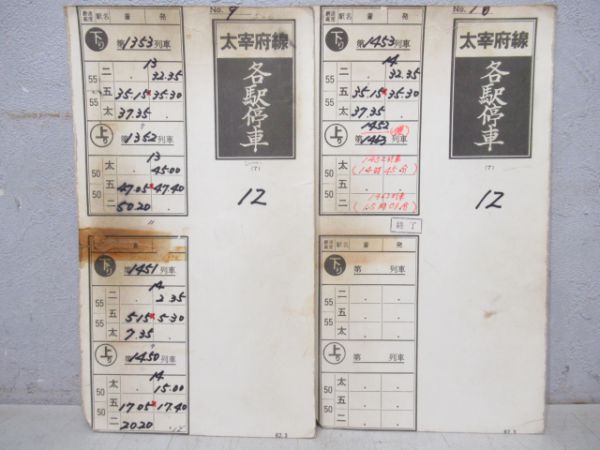 No. 9
最高速度 駅名 着 発
下り 第1353列車
13
二 . 32.35
55
五 35.15 35.30
55
太 37.35 .
上り 第1352列車
13
太 . 45.00
50
五 47.05 47.40
50
二 50.20 .
太宰府線
各駅停車
(T)
12
下り 第1451列車
14
二 . 2.35
55
五 5.15 5.30
55
太 7.35 .
上り 第1450列車
14
太 . 15.00
50
五 17.05 17.40
50
二 20.20
62.3
No. 10
最高速度 駅名 着 発
下り 第1453列車
14
二 . 32.35
55
五 35.15 35.30
55
太 37.35 .
1452
上り 第1463列車
太 1452列車
50 (14時45分)
五
50
二
終了
太宰府線
各駅停車
(T)
12
下り 第 列車
二 . .
55
五 . .
55
太 . .
上り 第 列車
太 . .
50
五 . .
50
二 . .
62.3